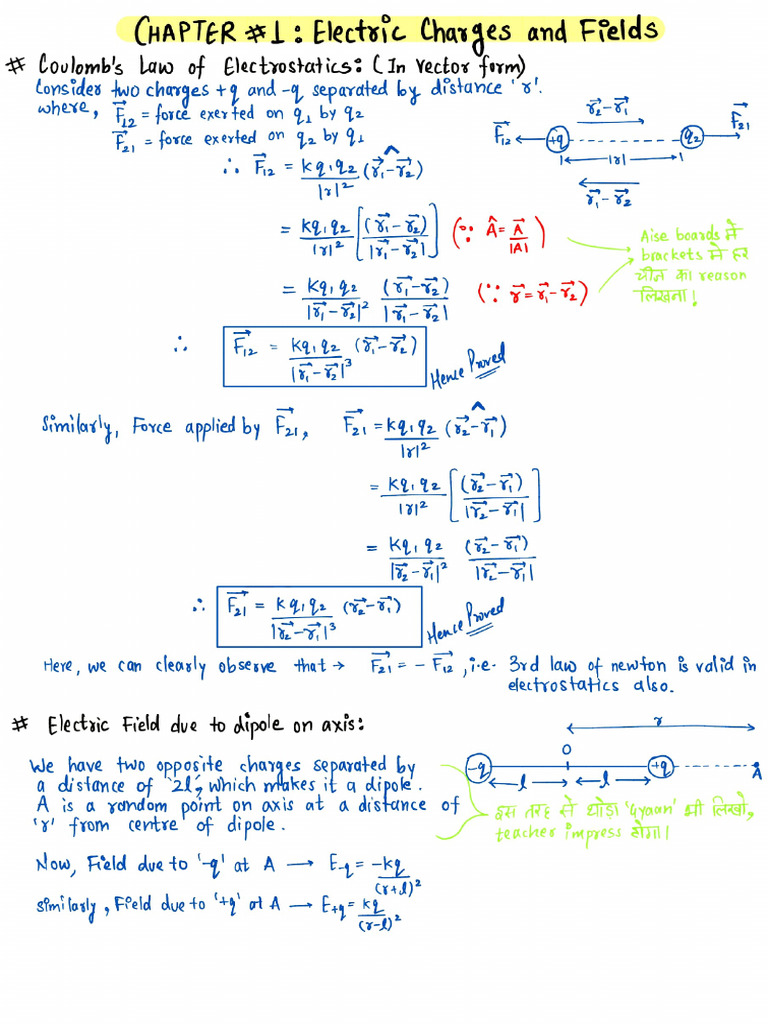 CHAPTER #1: Electric Charges and Fields
# Coulomb's Law of Electrostatics: (In vector form)
Consider two charges +q and -q separated by distance 'r'.
where, F⃗₁₂ = force exerted on q₁ by q₂
F⃗₂₁ = force exerted on q₂ by q₁
r⃗₂-r⃗₁
F⃗₁₂ +q q₂ F⃗₂₁
|r|
r⃗₁-r⃗₂
∴ F⃗₁₂ = kq₁q₂/|r|² (r⃗₁-r⃗₂)^
= kq₁q₂/|r|² [(r⃗₁-r⃗₂)/|r⃗₁-r⃗₂|] (∵ Â = A⃗/|A|)
= kq₁q₂/|r⃗₁-r⃗₂|² (r⃗₁-r⃗₂)/|r⃗₁-r⃗₂| (∵ r⃗ = r⃗₁-r⃗₂)
Aise boards में
brackets में हर
चीज का reason
लिखना!
∴ F⃗₁₂ = kq₁q₂/|r⃗₁-r⃗₂|³ (r⃗₁-r⃗₂)
Hence Proved
Similarly, Force applied by F⃗₂₁, F⃗₂₁ = kq₁q₂/|r|² (r⃗₂-r⃗₁)^
= kq₁q₂/|r|² [(r⃗₂-r⃗₁)/|r⃗₂-r⃗₁|]
= kq₁q₂/|r⃗₂-r⃗₁|² (r⃗₂-r⃗₁)/|r⃗₂-r⃗₁|
∴ F⃗₂₁ = kq₁q₂/|r⃗₂-r⃗₁|³ (r⃗₂-r⃗₁)
Hence Proved
Here, we can clearly observe that → F⃗₂₁ = -F⃗₁₂, i.e. 3rd law of newton is valid in
electrostatics also.
# Electric Field due to dipole on axis:
r
O
-q +q A
l l
We have two opposite charges separated by
a distance of '2l', which makes it a dipole.
A is a random point on axis at a distance of
'r' from centre of dipole.
इस तरह से थोड़ा 'Gyaan' भी लिखो,
teacher impress होगा!
Now, Field due to '-q' at A → E-q = -kq/(r+l)²
similarly, Field due to '+q' at A → E+q = kq/(r-l)²